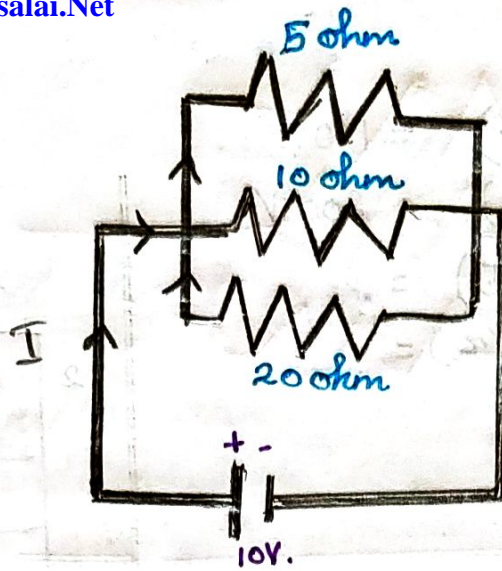 salai.Net
5 ohm
10 ohm
I
20 ohm
+ -
10V.